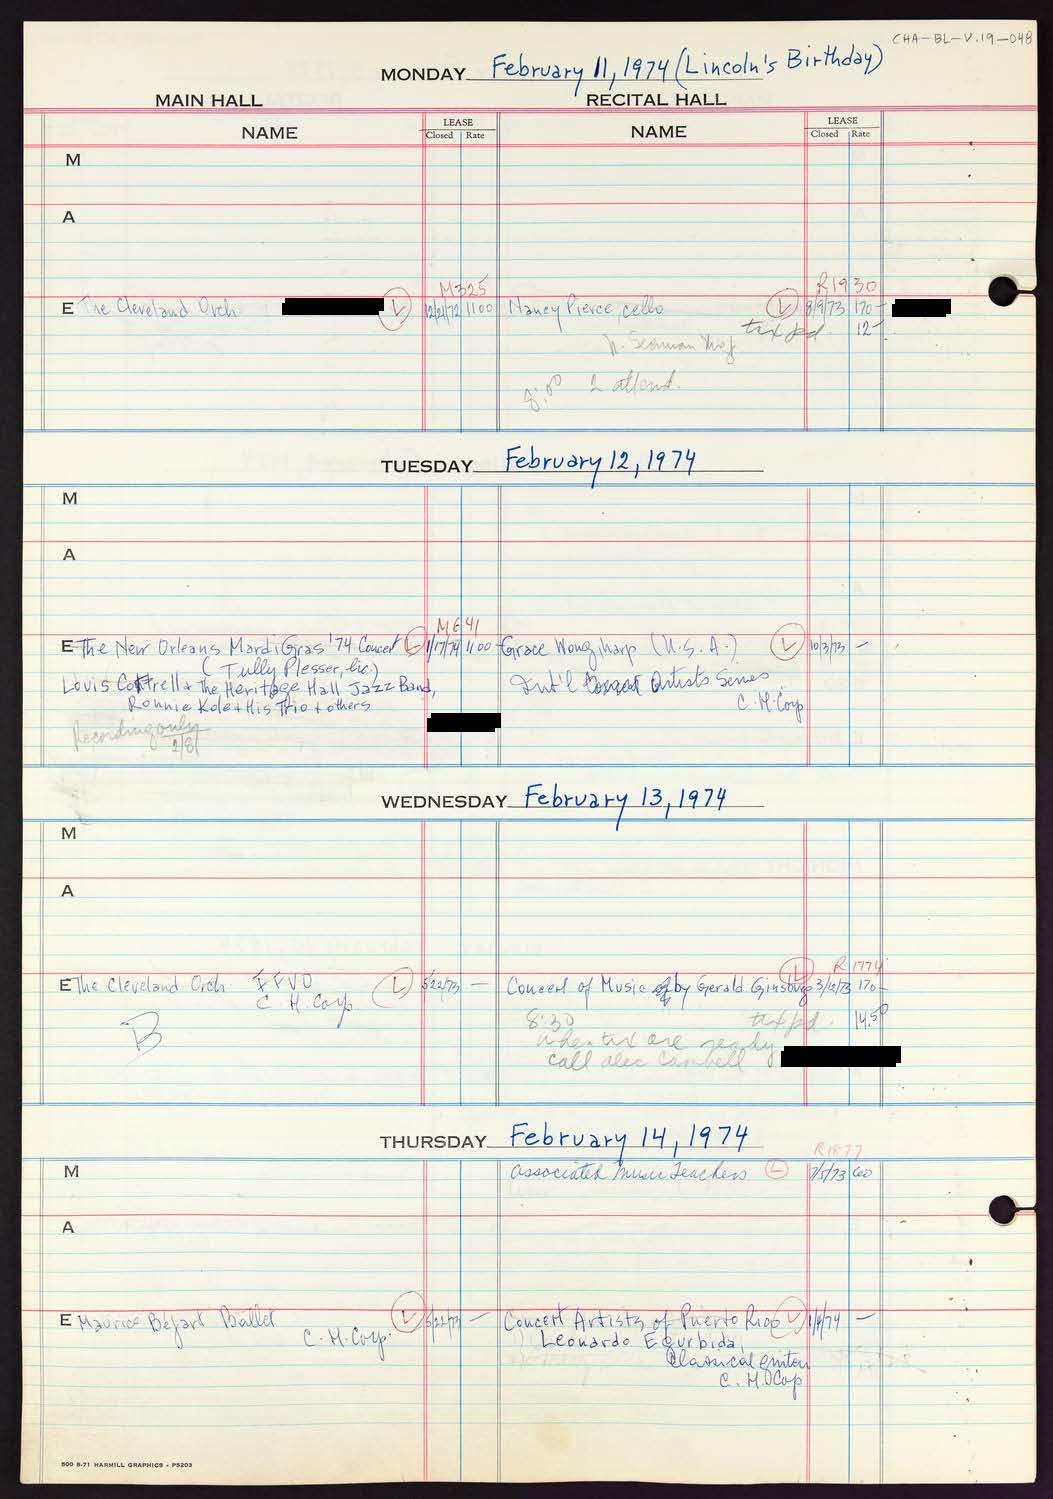 CHA-BL-V.19-048
MONDAY February 11, 1974 (Lincoln's Birthday)
MAIN HALL RECITAL HALL
NAME LEASE Closed Rate NAME LEASE Closed Rate
M
A
M325 R1930
E The Cleveland Orch L 12/21/72 1100 Nancy Pierce, cello L 8/9/73 170-
tax pd 12-
8:00 2 attend.
TUESDAY February 12, 1974
M
A
M641
E The New Orleans Mardi Gras '74 Concert L 1/17/74 1100 Grace Wong, harp (U.S.A.) L 10/3/73 -
(Tully Plesser, Inc.) Int'l Artists Series
Louis Cottrell + The Heritage Hall Jazz Band, C.H. Corp
Ronnie Kole + His Trio + others
Recording only
2/8
WEDNESDAY February 13, 1974
M
A
R 1774
E The Cleveland Orch FFVO L 5/22/73 - Concert of Music by Gerald Ginsburg L 3/12/73 170-
C H. Corp 8:30 tax pd. 14.50
B when tax are ready
call alec Cambell
THURSDAY February 14, 1974
R1877
M Associated Music Teachers L 7/5/73 60
A
E Maurice Bejart Ballet L 5/22/73 - Concert Artists of Puerto Rico L 1/4/74 -
C.H. Corp. Leonardo Egurbida,
Classical guitar
C.H. Corp
500 8-71 HARMILL GRAPHICS - P5203